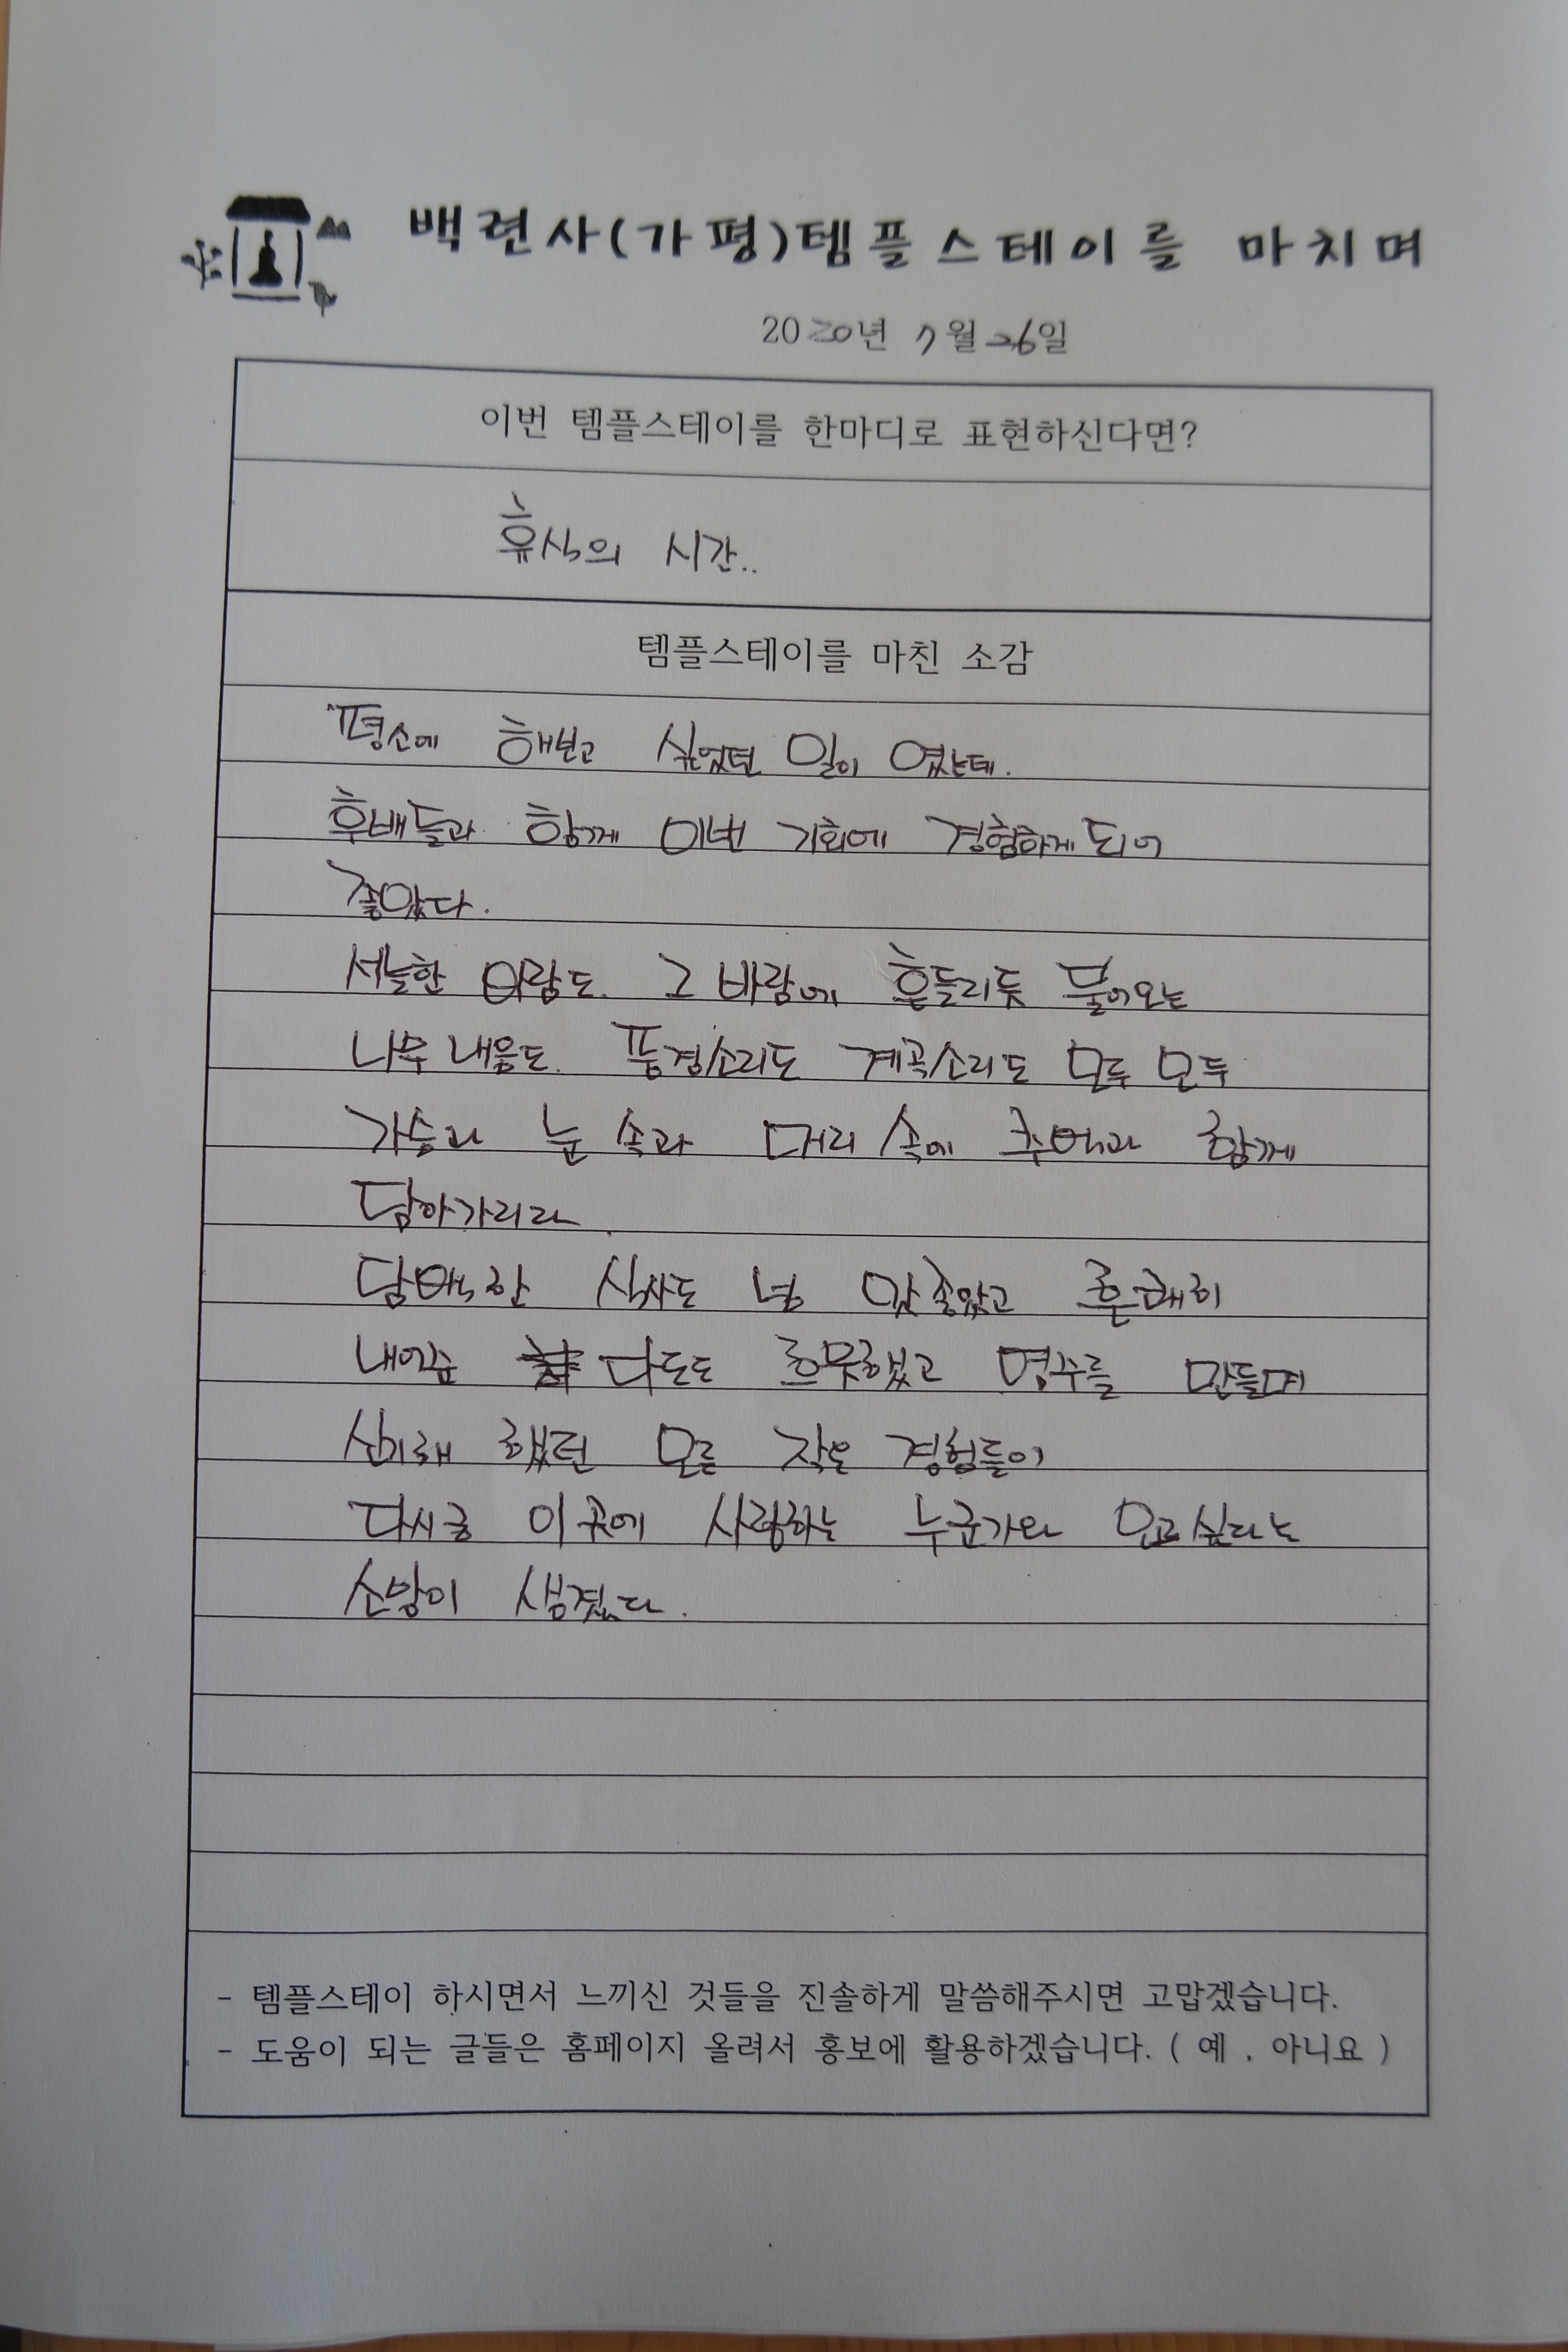 백련사(가평)템플스테이를 마치며
2020년 7월 26일
이번 템플스테이를 한마디로 표현하신다면?
휴식의 시간..
템플스테이를 마친 소감
평소에 해보고 싶었던 일이 였는데.
후배들과 함께 이번 기회에 경험하게 되어
좋았다.
서늘한 바람도. 그 바람에 흔들리듯 불어오는
나무 내음도. 풍경소리도 계곡소리도 모두 모두
가슴과 눈 속과 머리 속에 추억과 함께
담아가리라
담백한 식사도 넘 맛 좋았고
내어준 다도도 흐뭇했고 명주를 만들며
신기해 했던 모든 작은 경험들이
다시금 이 곳에 사랑하는 누군가와 오고싶다는
소망이 생겼다.
- 템플스테이 하시면서 느끼신 것들을 진솔하게 말씀해주시면 고맙겠습니다.
- 도움이 되는 글들은 홈페이지 올려서 홍보에 활용하겠습니다. ( 예 , 아니요 )